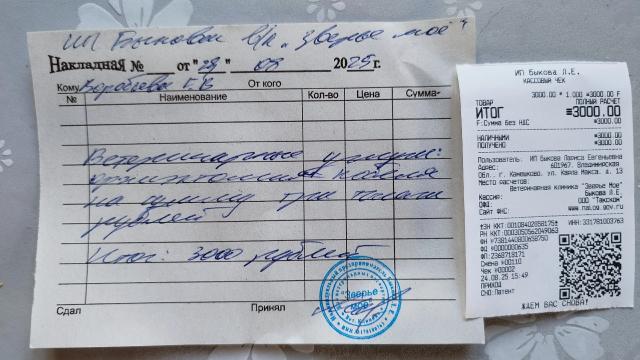 ИП Быковой в/к "Зверье моё"
Накладная № ___ от "28" 08 2025 г.
Кому Воробьева Г.В От кого
№ Наименование Кол-во Цена Сумма
Ветеринарные услуги:
на сумму три тысячи
рублей
Итог: 3000 рублей
Сдал Принял
Зверье
мое
ИП Быкова Л.Е.
КАССОВЫЙ ЧЕК
3000.00 * 1.000 =3000.00 F
ТОВАР ПОЛНЫЙ РАСЧЕТ
ИТОГ =3000.00
F:Сумма без НДС =3000.00
НАЛИЧНЫМИ =3000.00
ПОЛУЧЕНО =3000.00
Пользователь: ИП Быкова Лариса Евгеньевна
Адрес: 601967, Владимирская
Обл., г. Камешково, ул. Карла Маркса, д.13
Место расчетов:
Ветеринарная клиника "Зверье Мое"
Кассир: Быкова Л.Е.
ОФД: ООО "Такском"
Сайт ФНС: www.nalog.gov.ru
ЗН ККТ:00108402858175 ИНН:331781003763
РН ККТ:0003050562049063
ФН №7381440800658750
ФД №0000003635
ФП:2368718171
Смена №00110
Чек №00002
24.08.25 15:49
ПРИХОД
СНО:Патент
ЖДЕМ ВАС СНОВА!